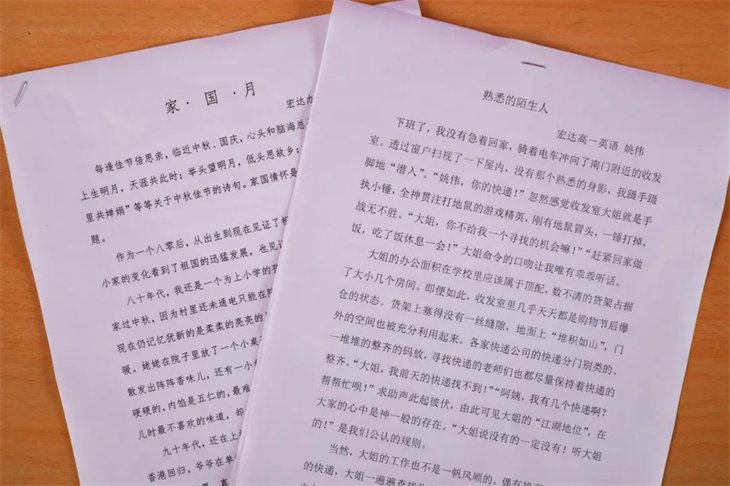 家·国·月
宏达办
每逢佳节倍思亲，临近中秋、国庆，心头和脑海总
上生明月，天涯共此时；举头望明月，低头思故乡；
里共婵娟”等等关于中秋佳节的诗句。家国情怀是
题。
作为一个八零后，从出生到现在见证了祖
小家的变化看到了祖国的迅猛发展，也见证
八十年代，我还是一个为上小学的孩
家过中秋，因为村里还未通电只能在院
现在仍记忆犹新的是柔柔的亮亮的
暖。姥姥在院子里放了一个小桌子
散发出阵阵香味儿，还有一小
硬硬的，内馅是五仁的，最难
儿时最不喜欢的味道，却
九十年代，还在上
香港回归。爷爷在单
熟悉的陌生人
宏达高一英语 姚伟
下班了，我没有急着回家，骑着电车冲向了南门附近的收发
室。透过窗户扫视了一下屋内，没有那个熟悉的身影，我蹑手蹑
脚地“潜入”。“姚伟，你的快递！”忽然感觉收发室大姐就是手
执小锤，全神贯注打地鼠的游戏精英，刚有地鼠冒头，一锤打掉，
战无不胜。“大姐，你不给我一个寻找的机会嘛！”“赶紧回家做
饭，吃了饭休息一会！”大姐命令的口吻让我唯有乖乖听话。
大姐的办公面积在学校里应该属于顶配，数不清的货架占据
了大小几个房间。即便如此，收发室里几乎天天都是购物节后爆
仓的状态。货架上塞得没有一丝缝隙，地面上“堆积如山”，门
外的空间也被充分利用起来。各家快递公司的快递分门别类的、
一堆堆的整齐的码放，寻找快递的老师们也都尽量保持着快递的
整齐。“大姐，我前天的快递找不到！”“阿姨，我有几个快递啊？
帮帮忙呗！”求助声此起彼伏，由此可见大姐的“江湖地位”，在
大家的心中是神一般的存在。“大姐说没有的一定没有！听大姐
的！”是我们公认的规则。
当然，大姐的工作也不是一帆风顺的。偶有找不
的快递，大姐一遍遍查找